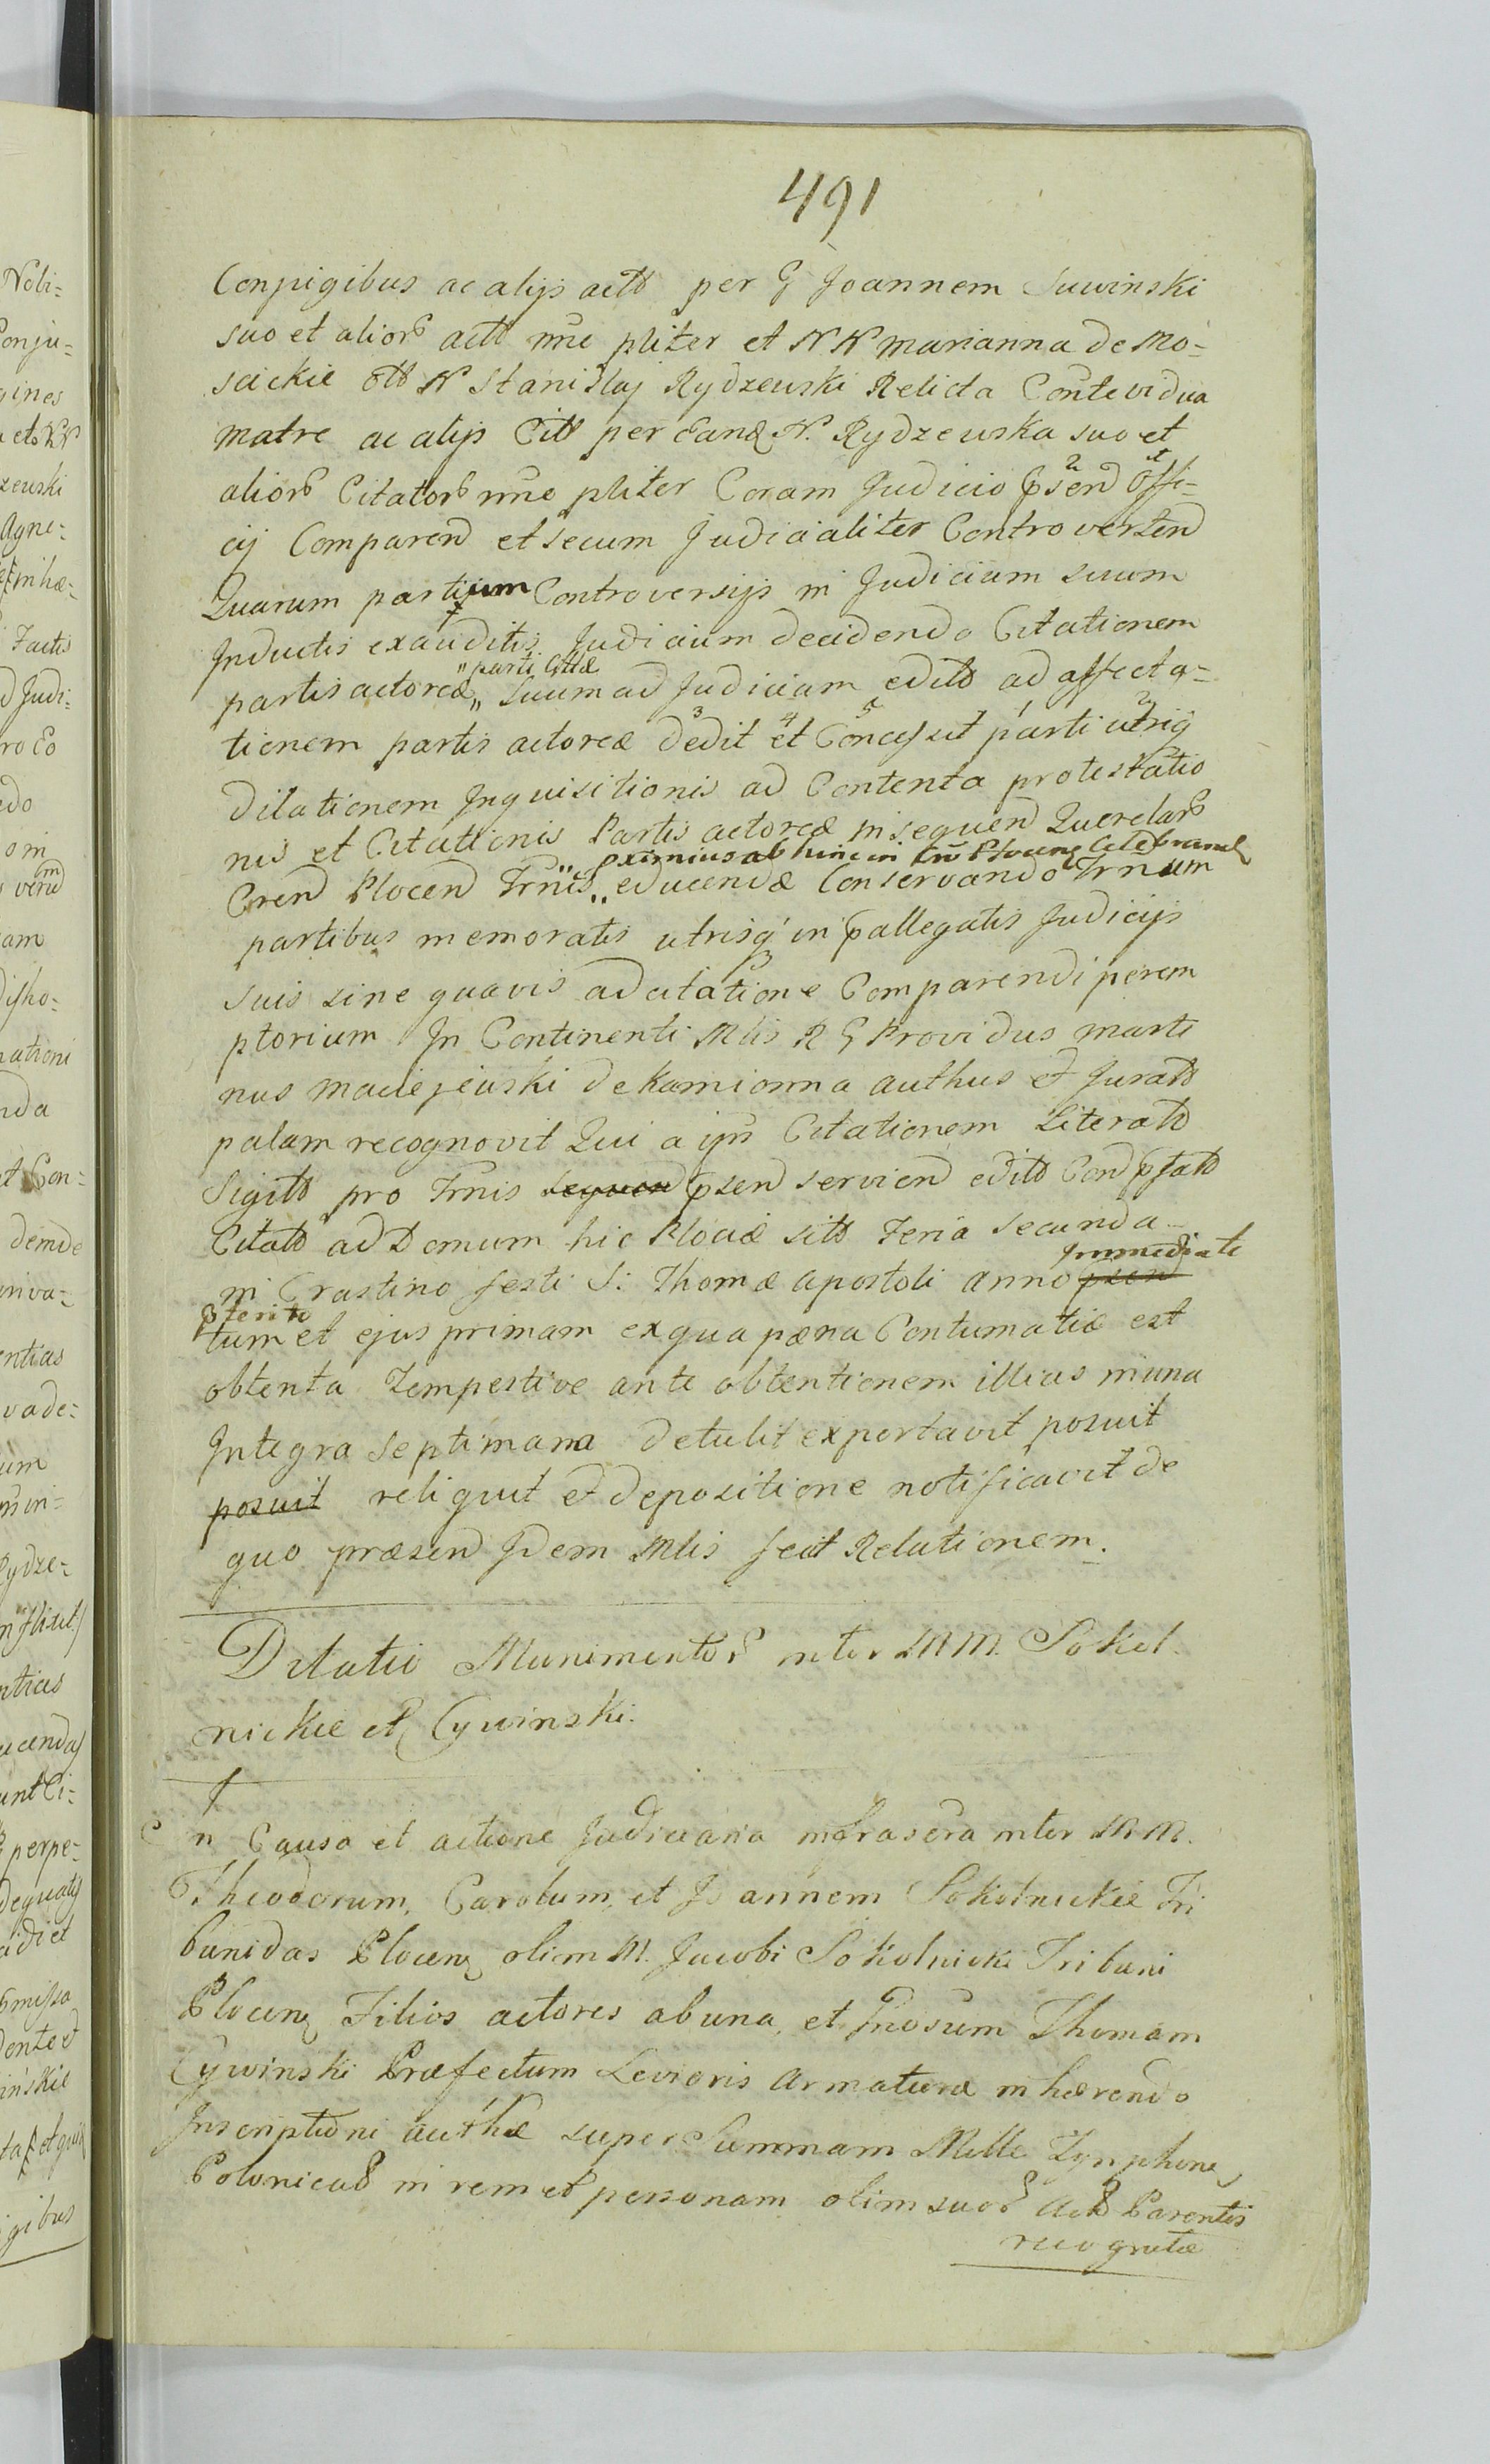 491
Conpigibus ac alijs actb per G Joannem Suwinski
suo et aliorb actt nne pliter et NN Marianna de Mo-
scickie ottb N Stanislaj Rydzewski Relicta Conte vidua
Matre ac alijs Citt per Eand N. Rydzewska suo et
aliorb Citatorb nne pliter Coram Judicio psend Offi-
cij Comparend et secum Judicialiter Controvertend
Quarum partium Controversijs in Judicium suum
Inductis exauditis Judicium decidendo Citationem
parti Cittæ
partis actoreæ „ Suum ad Judicium editb ad affecta-
tionem partis actoreæ dedit et Concessit parti utriq
dilationem Inquisitionis ad Contenta protestatio
nis et Citationis Partis actoreæ insequend Querelarb
pximius ab hinc in Crō Plocenq Celebrand
Crend Plocend Trnis „ educendæ Conservando Trnum
partibus memoratis utrisq in pallegatis Judicijs
suis sine quavis adcitatione Comparendi perem
ptorium In Continenti Mlis R G Providus Marti
nus Maciejewski de Kamionna authus et Juratb
palam recognovit Qui a ijs Citationem Literatb
Sigittb pro Trnis sequend psend serviend editb Cond pfatb
Citatb ad Domum hic Plociæ sitb Feria secunda
Immediate
in Crastino festi S: Thomæ Apostoli anno psend
pterito
tum et ejus primam ex qua pœna Contumatiæ est
obtenta Tempestive ante obtentionem illius in una
Integra septimana detulit exportavit posuit
posuit reliquit et depositione notificavit de
quo præsend Idem Mlis fecit Relationem.
Dilatio Munimentorb inter MM. Sokol
nickie et Cywinski.
In Causa et actione Judiciaria infrascra inter MM.
Theodorum, Carolum, et Joannem Sokolnickie Tri
bunidas Plocenq olim M. Jacobi Sokolnicki Tribuni
Plocenq Filios actores ab una, et Gnosum Thomam
Cywinski Præfectum Levioris Armaturæ inhærendo
Inscriptioni authæ super Summam Mille Tynphone
Polonicab in rem et personam olim suorb Actb Parentis
recognitæ